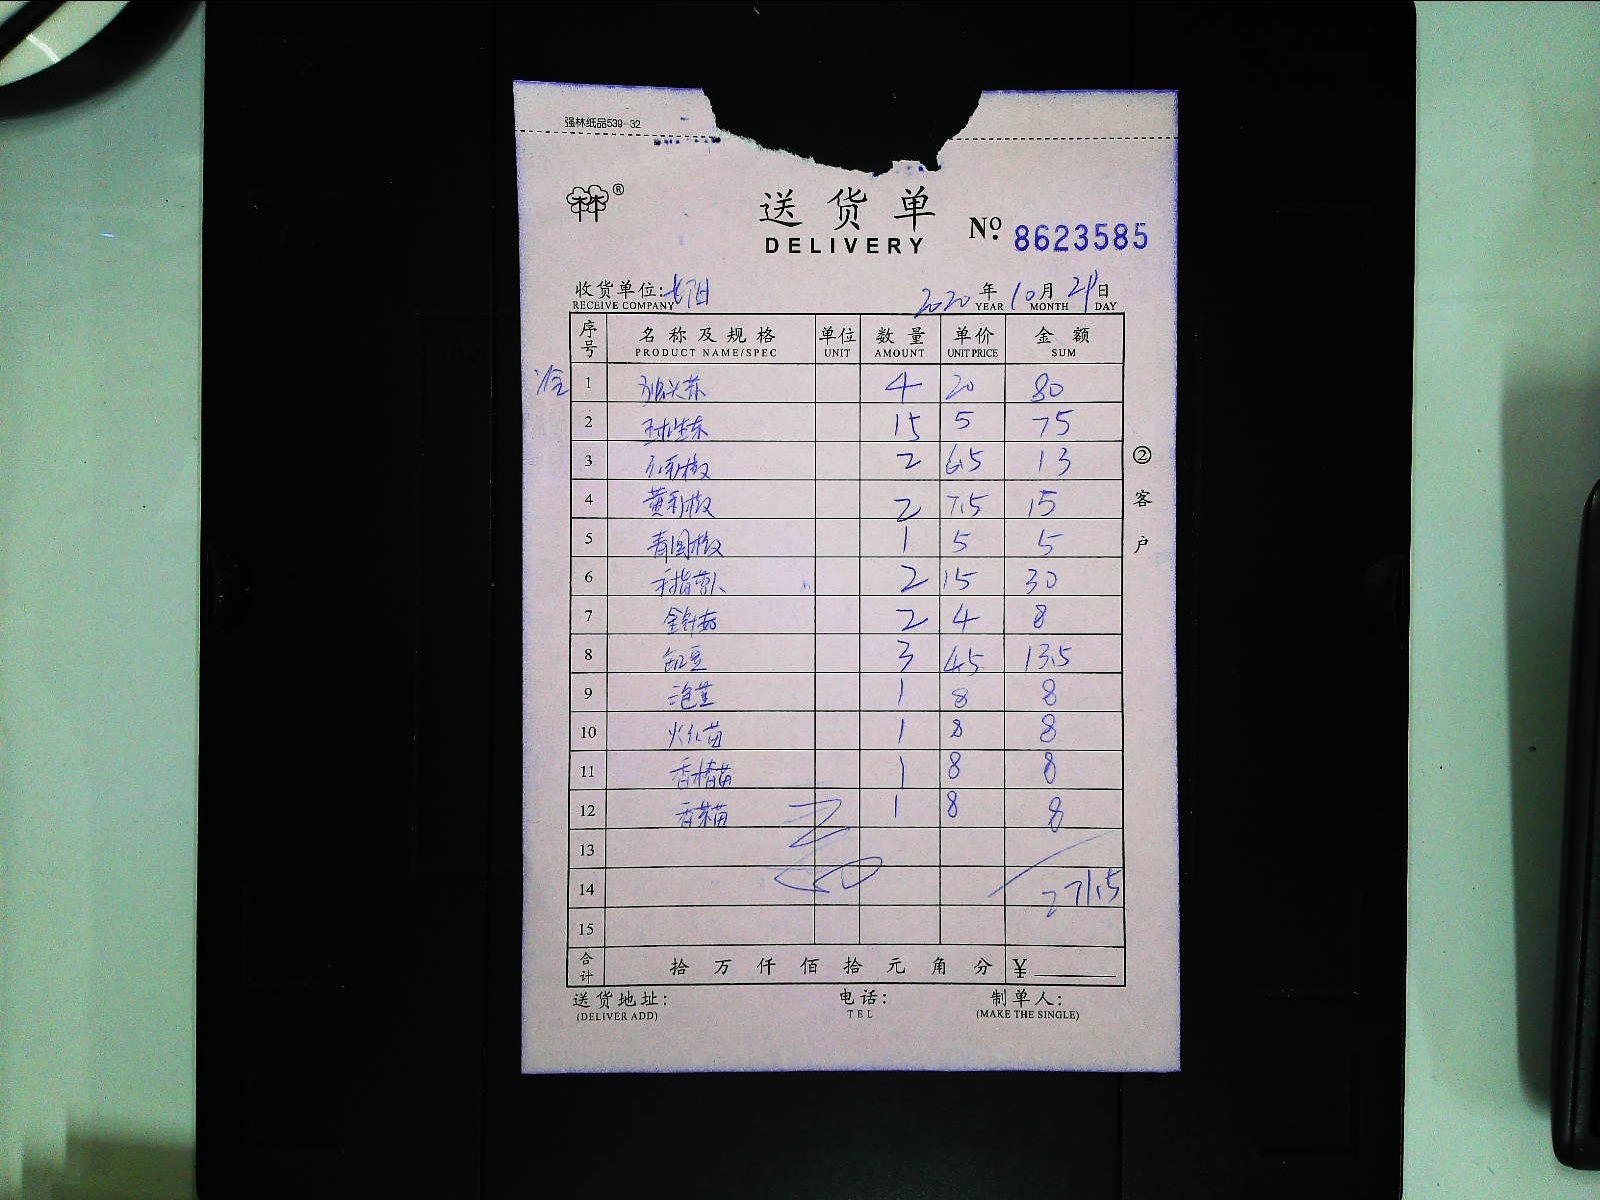 强林纸品539-32
®
送货单
DELIVERY
No. 8623585
收货单位:
RECEIVE COMPANY
2020年10月29日
YEAR MONTH DAY
序号 名称及规格 单位 数量 单价 金额
PRODUCT NAME/SPEC UNIT AMOUNT UNIT PRICE SUM
1 4 20 80
2 球生菜 15 5 75
3 红彩椒 2 6.5 13
4 黄彩椒 2 7.5 15
5 青圆椒 1 5 5
6 手指萝卜 2 15 30
7 金针菇 2 4 8
8 缸豆 3 4.5 13.5
9 1 8 8
10 火红苗 1 8 8
11 香椿苗 1 8 8
12 香菜苗 1 8 8
13
14 271.5
15
合计 拾万仟佰拾元角分 ¥
②客户
送货地址: 电话: 制单人:
(DELIVER ADD) TEL (MAKE THE SINGLE)